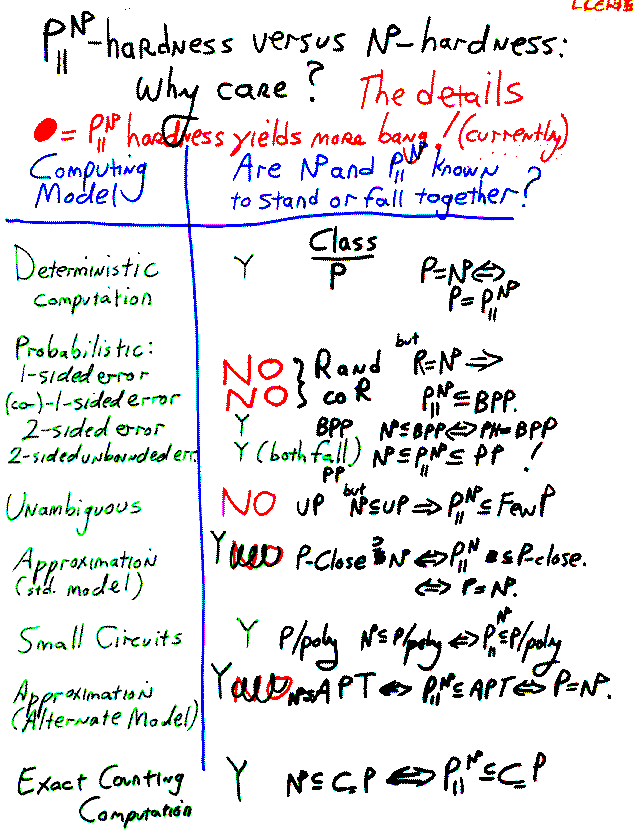 P||^NP-hardness versus NP-hardness:
Why care? The details
= P||^NP hardness yields more bang! (currently)
Computing Model
Are NP and P||^NP known
to stand or fall together?
Class
Deterministic computation Y P P=NP⇔
P=P||^NP
Probabilistic:
1-sided error NO } R and but R=NP ⇒
(co-)-1-sided error NO } coR P||^NP ⊆ BPP.
2-sided error Y BPP NP⊆BPP⇔PH=BPP
2-sided unbounded err. Y (both fall) PP NP⊆P||^NP⊆PP !
Unambiguous NO UP but NP⊆UP ⇒ P||^NP ⊆ FewP
Approximation (std. model) Y P-Close ⊇ NP ⇔ P||^NP ⊆ P-close.
⇔ P=NP.
Small Circuits Y P/poly NP⊆P/poly ⇔ P||^NP⊆P/poly
Approximation (Alternate Model) Y NP⊆APT ⇔ P||^NP⊆APT ⇔ P=NP.
Exact Counting Computation Y NP⊆C=P ⇔ P||^NP⊆C=P